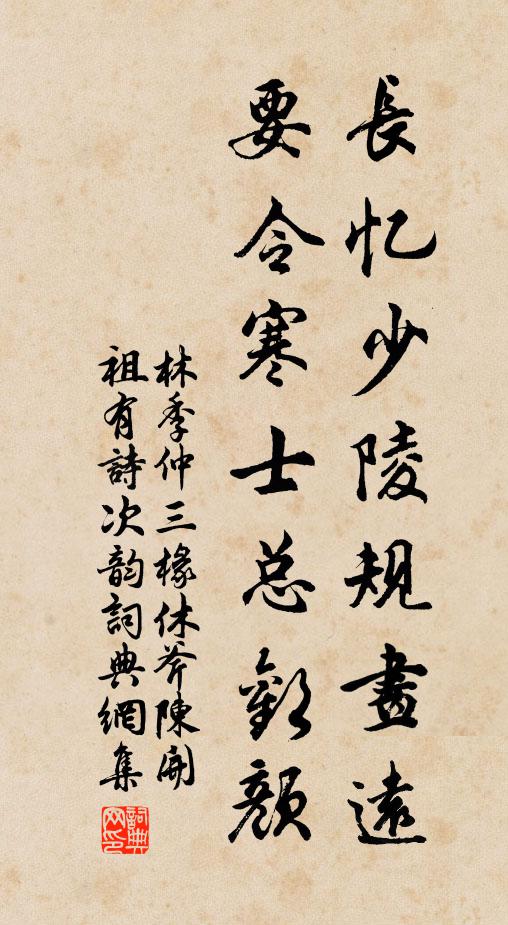 長忆少陵規畫遠
要令寒士总歡顏
林季仲三椽休斧陳開
祖有詩次韵詞典網集
詞典网印